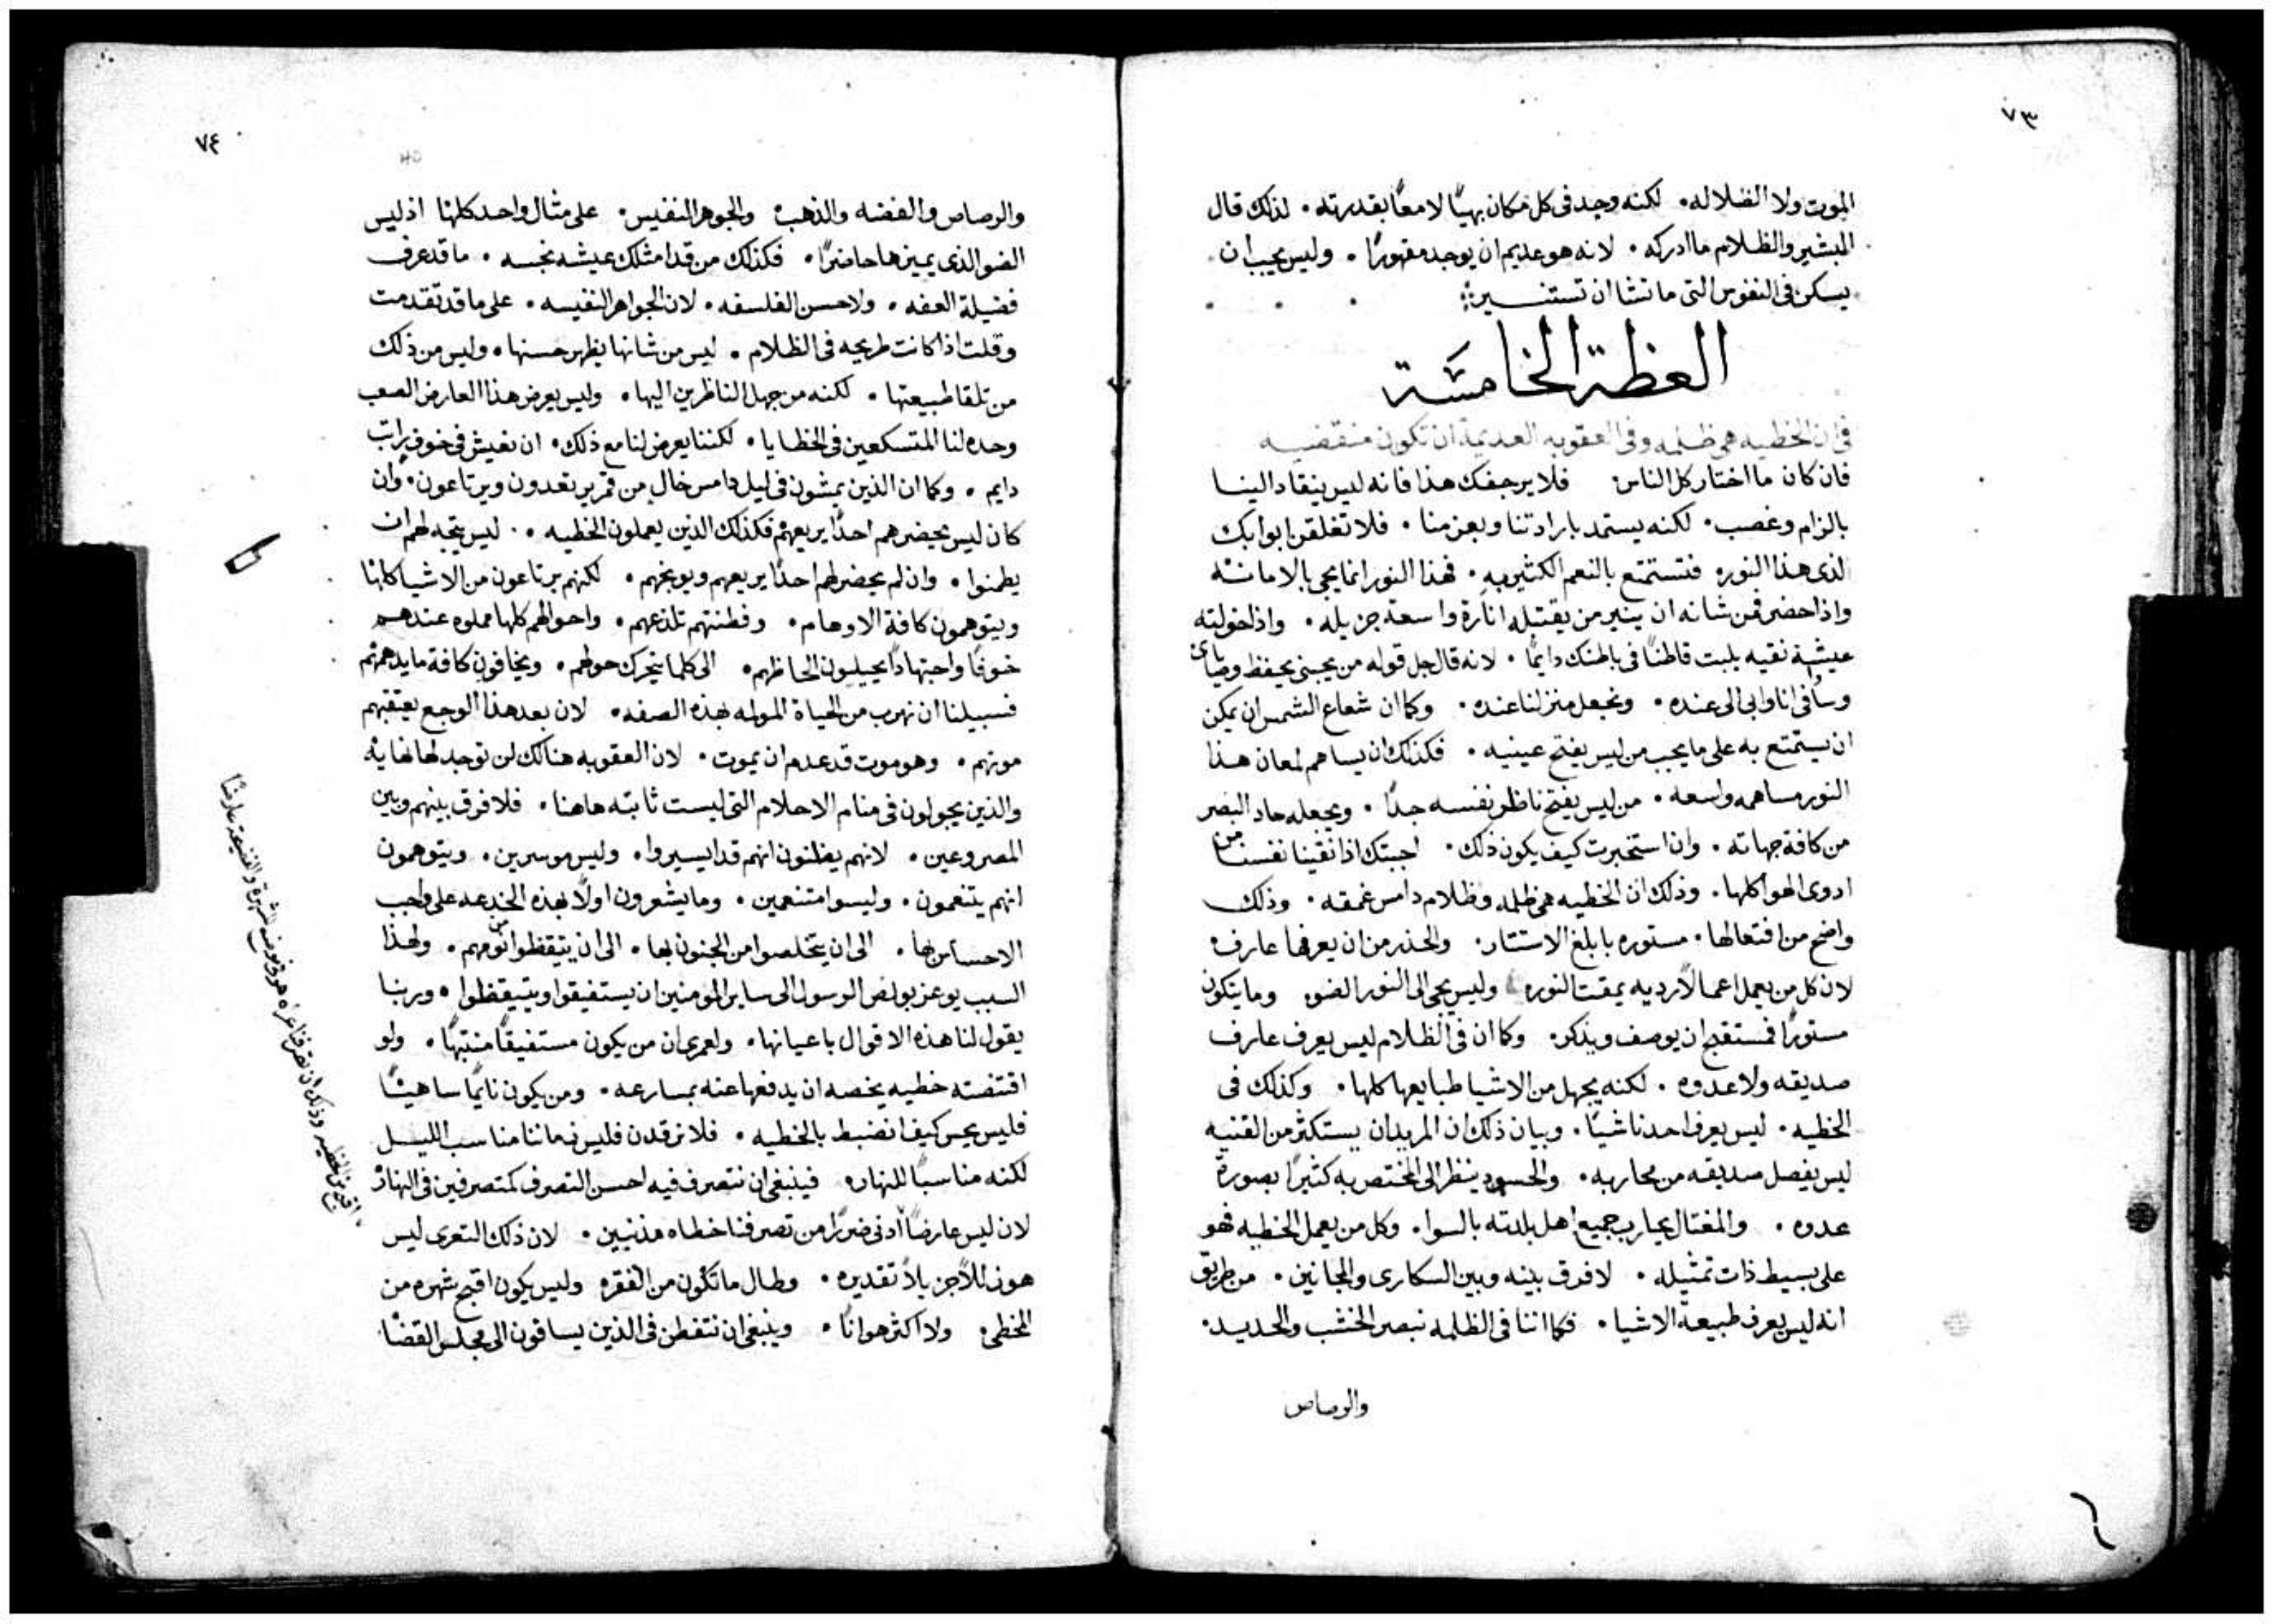 ٧٣
الموت ولا الضلاله. لكنه وجد في كل مكان بهيًا لامعًا بقدرته. لذلك قال
المبشير والظلام ما ادركه. لانه هو عديم ان يوجد مقهورًا. وليس يجب ان
يسكن في النفوس التي ما تشا ان تستنسير
العظة الخامسة
في ان الخطيه هي ظلمه وفي العقوبه العديمة ان تكون منقضيه
فان كان ما اختار كل الناس. فلا يرجفك هذا فانه ليس ينقاد الينا
بالزام وغصب. لكنه يستمد بارادتنا وبعزمنا. فلا تغلقن ابوابك
لذى هذا النور. فتستمتع بالنعم الكثيره. فهذا النور انما يجي بالامانه
واذا حضر فمن شانه ان ينير من يقتبله انارة واسعة جزيله. واذا خولته
عيشة نقيه يلبت قاطنًا في باطنك دايمًا. لانه قال جل قوله من يحبني يحفظ وصاياي
وسأفي انا وابي الى عنده. ونجعل منزلنا عنده. وكما ان شعاع الشمس ان يمكن
ان يستمتع به على ما يجب من ليس يفتح عينيه. فكذلك ان يساهم لمعان هذا
النور مساهمه واسعه. من ليس يفتح ناظر نفسه جدًا. ويجعله حاد البصر
من كافة جهاته. وان استخبرت كيف يكون ذلك. اجبتك اذا نقينا نفسنا من
ادوى الهوا كلها. وذلك ان الخطيه هي ظلمه وظلام دامس غمقه. وذلك
واضح من افتعالها. مستوره بابلغ الاستتار. والحذر من ان يعرفها عارف
لان كل من يعمل اعمالًا رديه يمقت النور. وليس يجي الى النور الضو. وما يتكون
مستورًا فمستقبح ان يوصف ويذكر. وكما ان في الظلام ليس يعرف عارف
صديقه ولا عدوه. لكنه يجهل من الاشيا طبايعها كلها. وكذلك في
الخطيه. ليس يعرف احدنا شيًا. وبيان ذلك ان المريد ان يستكثر من القنيه
ليس يفصل صديقه من محاربه. والحسود ينظر الى المختص به كثيرًا بصورة
عدوه. والمغتال يحارب جميع اهل بلدته بالسوا. وكل من يعمل الخطيه فهو
على بسيط ذات تمثيله. لا فرق بينه وبين السكارى والمجانين. من طريق
انه ليس يعرف طبيعة الاشيا. فكما اننا في الظلمه نبصر الخشب والحديد.
والرصاص
٧٤
والرصاص والفضه والذهب والجوهر النفيس. على مثال واحد كلها اذ ليس
الضو الذي يميزها حاضرًا. فكذلك من قد امتلك عيشه نجسه. ما قد عرف
فضيلة العفه. ولا حسن الفلسفه. لان الجواهر النفيسه. على ما قد تقدمت
وقلت اذا كانت طريحه في الظلام. ليس من شانها يظهر حسنها. وليس من ذلك
من تلقا طبيعتها. لكنه من جهل الناظرين اليها. وليس يعرض هذا العارض الصعب
وحده لنا المتسكعين في الخطايا. لكننا يعرض لنا مع ذلك. ان نعيش في خوف راتب
دايم. وكما ان الذين يمشون في ليل دامس خال من قمر يرتعدون ويرتاعون. وان
كان ليس يحضرهم احدًا يريعهم فكذلك الذين يعملون الخطيه. ليس يتجه لهم ان
يطمنوا. وان لم يحضر لهم احدًا يريعهم ويوبخهم. لكنهم يرتاعون من الاشيا كلها
ويتوهمون كافة الاوهام. وفطنتهم تلذعهم. واحوالهم كلها مملوه عندهم
خوفًا واجتهادًا يجيلون الحاظهم. الى كلما يتحرك حولهم. ويخافون كافة ما يدهمهم
فسبيلنا ان نهرب من الحياة المولمه بهذه الصفه. لان بعد هذا الوجع يعتقبهم
موتهم. وهو موت قد عدم ان يموت. لان العقوبه هنالك لن توجد لها نهايه
والذين يجولون في منام الاحلام التي ليست ثابته هاهنا. فلا فرق بينهم وبين
المصروعين. لانهم يظنون انهم قد ايسيروا. وليس موسرين. ويتوهمون
انهم يتنعمون. وليسوا متنعمين. وما يشعرون اولًا بهذه الخدعه على واجب
الاحساس بها. الى ان يتخلصوا من الجنون بها. الى ان يتيقظوا من نومهم. ولهذا
السبب يوعز بولص الرسول الى ساير المومنين ان يستفيقوا ويتيقظوا. وربنا
يقول لنا هذه الاقوال باعيانها. ولعمري ان من يكون مستفيقًا منتبهًا. ولو
اقتنصته خطيه يخصه ان يدفعها عنه بمسارعه. ومن يكون نايمًا ساهيًا
فليس يحس كيف انضبط بالخطيه. فلا نرقدن فليس زماننا مناسب الليل
لكنه مناسبًا للنهار. فينبغي ان نتصرف فيه احسن التصرف كمتصرفين في النهار
لان ليس عارضًا ادنى ضررًا من تصرفنا خطاه مذنبين. لان ذلك التعرى ليس
هو زللًا جزيلًا تقديره. وطال ما تكون من الفقر. وليس يكون اقبح شهره من
المخطي. ولا اكثر هوانًا. وينبغي ان نتفطن في الذين يساقون الى مجلس القضا